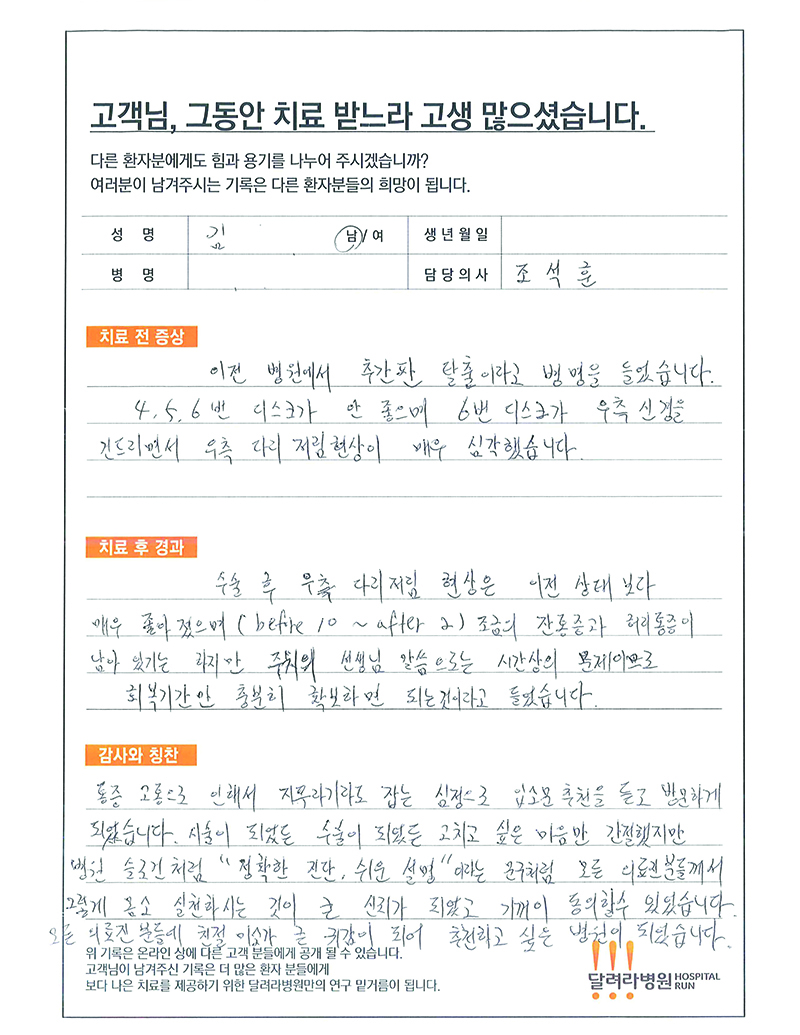 고객님, 그동안 치료 받느라 고생 많으셨습니다.
다른 환자분에게도 힘과 용기를 나누어 주시겠습니까?
여러분이 남겨주시는 기록은 다른 환자분들의 희망이 됩니다.
성 명 김 남/여 생년월일
병 명 담당의사 조석훈
치료 전 증상
이전 병원에서 추간판 탈출이라고 병명을 들었습니다.
4, 5, 6번 디스크가 안 좋으며 6번 디스크가 우측 신경을
건드리면서 우측 다리 저림현상이 매우 심각했습니다.
치료 후 경과
수술 후 우측 다리저림 현상은 이전 상태보다
매우 좋아졌으며 (before 10 ~ after 2) 조금의 잔통증과 허리통증이
남아 있기는 하지만 주치의 선생님 말씀으로는 시간상의 문제이므로
회복기간만 충분히 확보하면 되는것이라고 들었습니다.
감사와 칭찬
통증 고통으로 인해서 지푸라기라도 잡는 심정으로 입소문 추천을 듣고 방문하게
되었습니다. 시술이 되었든 수술이 되었든 고치고 싶은 마음만 간절했지만
병원 슬로건처럼 "정확한 진단, 쉬운 설명"이라는 문구처럼 모든 의료진분들께서
그렇게 몸소 실천하시는 것이 큰 신뢰가 되었고 기꺼이 동의할수 있었습니다.
모든 의료진분들에 친절 미소가 큰 귀감이 되어 추천하고 싶은 병원이 되었습니다.
위 기록은 온라인 상에 다른 고객 분들에게 공개 될 수 있습니다.
고객님이 남겨주신 기록은 더 많은 환자 분들에게
보다 나은 치료를 제공하기 위한 달려라병원만의 연구 밑거름이 됩니다.
달려라병원 HOSPITAL RUN